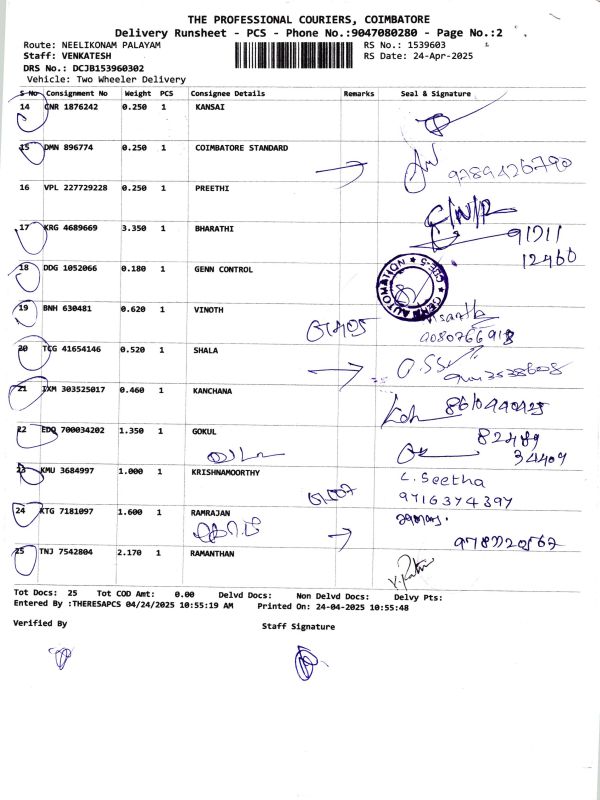 THE PROFESSIONAL COURIERS, COIMBATORE
Delivery Runsheet - PCS - Phone No.:9047080280 - Page No.:2
Route: NEELIKONAM PALAYAM
RS No.: 1539603
Staff: VENKATESH
RS Date: 24-Apr-2025
DRS No.: DCJB153960302
Vehicle: Two Wheeler Delivery
S No Consignment No Weight PCS Consignee Details Remarks Seal & Signature
14 CNR 1876242 0.250 1 KANSAI
15 DMN 896774 0.250 1 COIMBATORE STANDARD
9789426790
16 VPL 227729228 0.250 1 PREETHI
17 KRG 4689669 3.350 1 BHARATHI
12460
18 DDG 1052066 0.180 1 GENN CONTROL
GENN AUTOMATION CBE-5
19 BNH 630481 0.620 1 VINOTH
20 TCG 41654146 0.520 1 SHALA
21 IXM 303525017 0.460 1 KANCHANA
22 EDQ 700034202 1.350 1 GOKUL
82489
34409
23 KMU 3684997 1.000 1 KRISHNAMOORTHY
L. Seetha
9716374397
24 KTG 7181097 1.600 1 RAMRAJAN
25 TNJ 7542804 2.170 1 RAMANTHAN
Tot Docs: 25 Tot COD Amt: 0.00 Delvd Docs: Non Delvd Docs: Delvy Pts:
Entered By :THERESAPCS 04/24/2025 10:55:19 AM Printed On: 24-04-2025 10:55:48
Verified By
Staff Signature